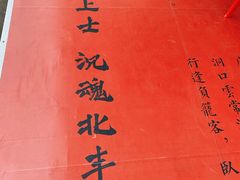 洞口雲常
行逢負籠客，臥
上士 況魂北丰